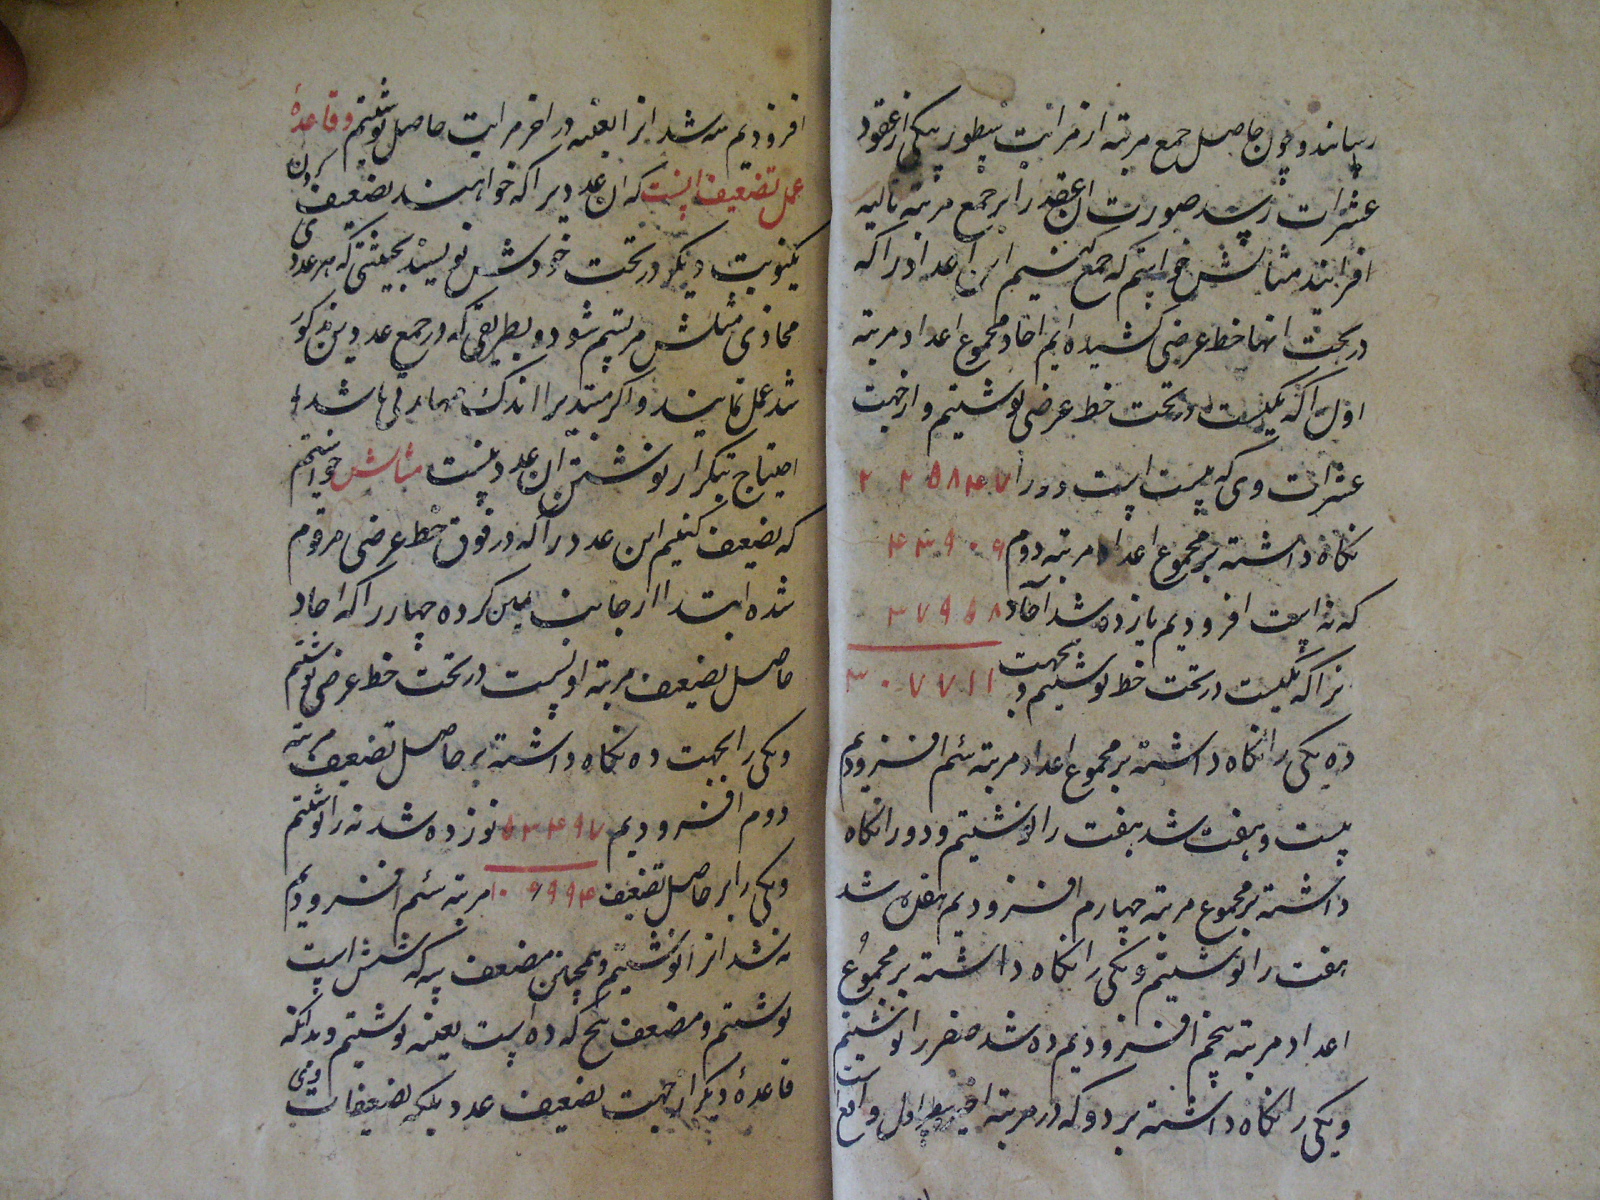 رسانند و چون حاصل جمع مرتبه از مراتب سطور بیکی از عقود
عشرات رسد صورت ان عقد را بر جمع مرتبه تالیه
افزایند مثالش خواستیم که جمع کنیم این اعداد را که
در تحت انها خط عرضی کشیده ایم احاد مجموع اعداد مرتبه
اول را که یکیست در تحت خط عرضی نوشتیم و از جهت
عشرات وی که بیست است دو را ۲ ۲ ۵ ۸ ۴ ۷
نکاه داشته بر مجموع اعداد مرتبه دوم ۴ ۳ ۹ ۰ ۶
که نه است افزودیم یازده شد آحاد ۳ ۷ ۹ ۵ ۸
نرا که یکیست در تحت خط نوشتیم و بجهت ۳ ۰ ۷ ۷ ۱ ۱
ده یکی را نکاه داشته بر مجموع اعداد مرتبه سیم افزودیم
بیست و هفت شد هفت را نوشتیم و دو را نکاه
داشته بر مجموع مرتبه چهارم افزودیم هفده شد
هفت را نوشتیم و یکی را نکاه داشته بر مجموع
اعداد مرتبه پنجم افزودیم ده شد صفر را نوشتیم
و یکی را نکاه داشته بر دو که در مرتبه اخیر سطر اول واقع است
افزودیم سه شد انرا بعینه در اخر مراتب حاصل نوشتیم و قاعدهٔ
عمل تضعیف اینست که ان عدد یرا که خواهند تضعیف کردن
یکنوبت دیکر در تحت خودش نویسند بحیثیتی که هر عددی
محاذی مثلش مرتسم شود و بطریقی که در جمع عددین مذکور
شد عمل نمایند و اکر مبتدیرا اندک مهارتی باشد
احتیاج بتکرار نوشتن ان عدد نیست مثالش خواستیم
که تضعیف کنیم این عدد را که در فوق خط عرضی مرقوم
شده ابتدا از جانب یمین کرده چهار را که احاد
حاصل تضعیف مرتبه اولیست در تحت خط عرضی نوشتیم
و یکی را بجهت ده نکاه داشته بر حاصل تضعیف مرتبه
دوم افزودیم ۵ ۳ ۴ ۹ ۷ نوزده شد نه را نوشتیم
و یکی را بر حاصل تضعیف ۱ ۰ ۶ ۹ ۹ ۴ مرتبه سیم افزودیم
نه شد انرا نوشتیم و همچنین مضعف سه که شش است
نوشتیم و مضعف پنج که ده است بعینه نوشتیم و بدانکه
قاعدهٔ دیکر از جهت تضعیف عدد بلکه تضعیفات وی